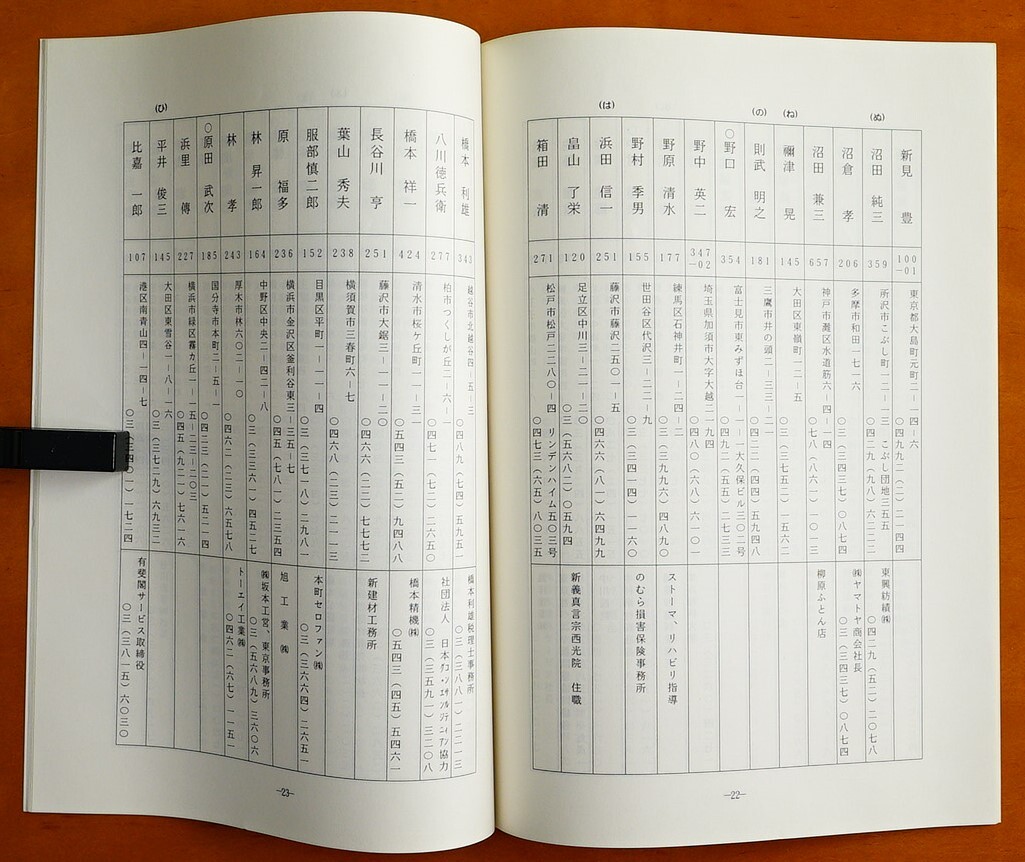 新見 豊
100-01
東京都大島町元町二-一四-六
〇四九九二(二)二一四四
(ぬ)
沼田 純三
359
所沢市こぶし町一二-一三 こぶし団地三五五
東興紡績㈱
〇四二九(五二)二〇七八
沼倉 孝
206
多摩市和田一七一六
㈱ヤマトヤ商会社長
〇三(三四三七)〇八七四
沼田 兼三
657
神戸市灘区水道筋六-四-一四
〇七八(八六一)一〇一三
柳原ふとん店
(ね)
禰津 晃
145
大田区東嶺町一二-五
〇三(三七五二)一五六二
(の)
則武 明之
181
三鷹市井の頭二-三三-二一
〇四二二(四四)五九四八
〇野口 宏
354
富士見市東みずほ台一-一-一大久保ビル三〇二号
野中 英二
347-02
埼玉県加須市大字大越二一九四
〇四八〇(六八)六一〇一
野原 清水
177
練馬区石神井町一-二四-二
〇三(三九九六)四八九〇
ストーマ、リハビリ指導
野村 季男
155
世田谷区代沢三-二一-九
〇三(三四一四)一一六〇
のむら損害保険事務所
(は)
浜田 信一
251
藤沢市藤沢二五〇一-五
畠山 了栄
120
足立区中川三-二一-二〇
〇三(五六八二)〇五九四
新義真言宗西光院 住職
箱田 清
271
松戸市松戸二二八〇-四 リンデンハイム五〇三号
〇四七三(六五)八〇三五
-22-
橋本 利雄
343
越谷市北越谷四-五-三
橋本利雄税理士事務所
八川徳兵衛
277
柏市つくしが丘二-六-一
〇四七一(七二)二六五〇
橋本 祥一
424
清水市桜ヶ丘町一一-三一
〇五四三(五二)九四八八
橋本精機㈱
〇五四三(四五)五四六一
長谷川 亨
251
藤沢市大鋸三-一一-二〇
〇四六六(二二)七七七二
新建材工務所
葉山 秀夫
238
横須賀市三春町六-七
〇四六八(二三)二一一三
服部慎二郎
152
目黒区平町一-一一-四
〇三(三七一八)二九八一
本町セロファン㈱
〇三(三六六四)二六五一
原 福多
236
横浜市金沢区釜利谷東三-三五-七
〇四五(七八一)二三五四
旭工業㈱
林 昇一郎
164
中野区中央二-四二-八
〇三(三三六一)四五二七
㈱坂本工営、東京事務所
〇三(五六八九)三六〇六
林 孝
243
厚木市林六〇二-一〇
〇四六二(二三)六五七八
トーエイ工業㈱
〇四六二(六七)一一五一
〇原田 武次
185
国分寺市本町二-五-一
〇四二三(二一)五二一四
浜里 傳
227
横浜市緑区霧カ丘一-一五-二三-二〇三
〇四五(九二一)七六一六
(ひ)
平井 俊三
145
大田区東雪谷一-八-一六
〇三(三七二九)六九三二
比嘉 一郎
107
港区南青山四-一四-七
〇三(三四〇一)一七二四
有斐閣サービス取締役
〇三(三八一五)六〇三〇
-23-